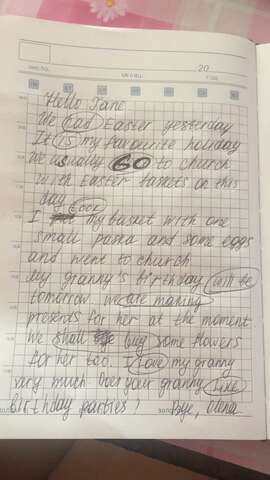 20
Hello Jane
We had Easter yesterday
It is my favourite holiday
We usually GO to church
with Easter baskets on this
day
I took my basket with one
small paska and some eggs
and went to church
My granny's birthday will be
tomorrow. We are making
presents for her at the moment
We shall buy some flowers
for her too. I love my granny
very much Does your granny like
Birthday parties? Bye, Olena